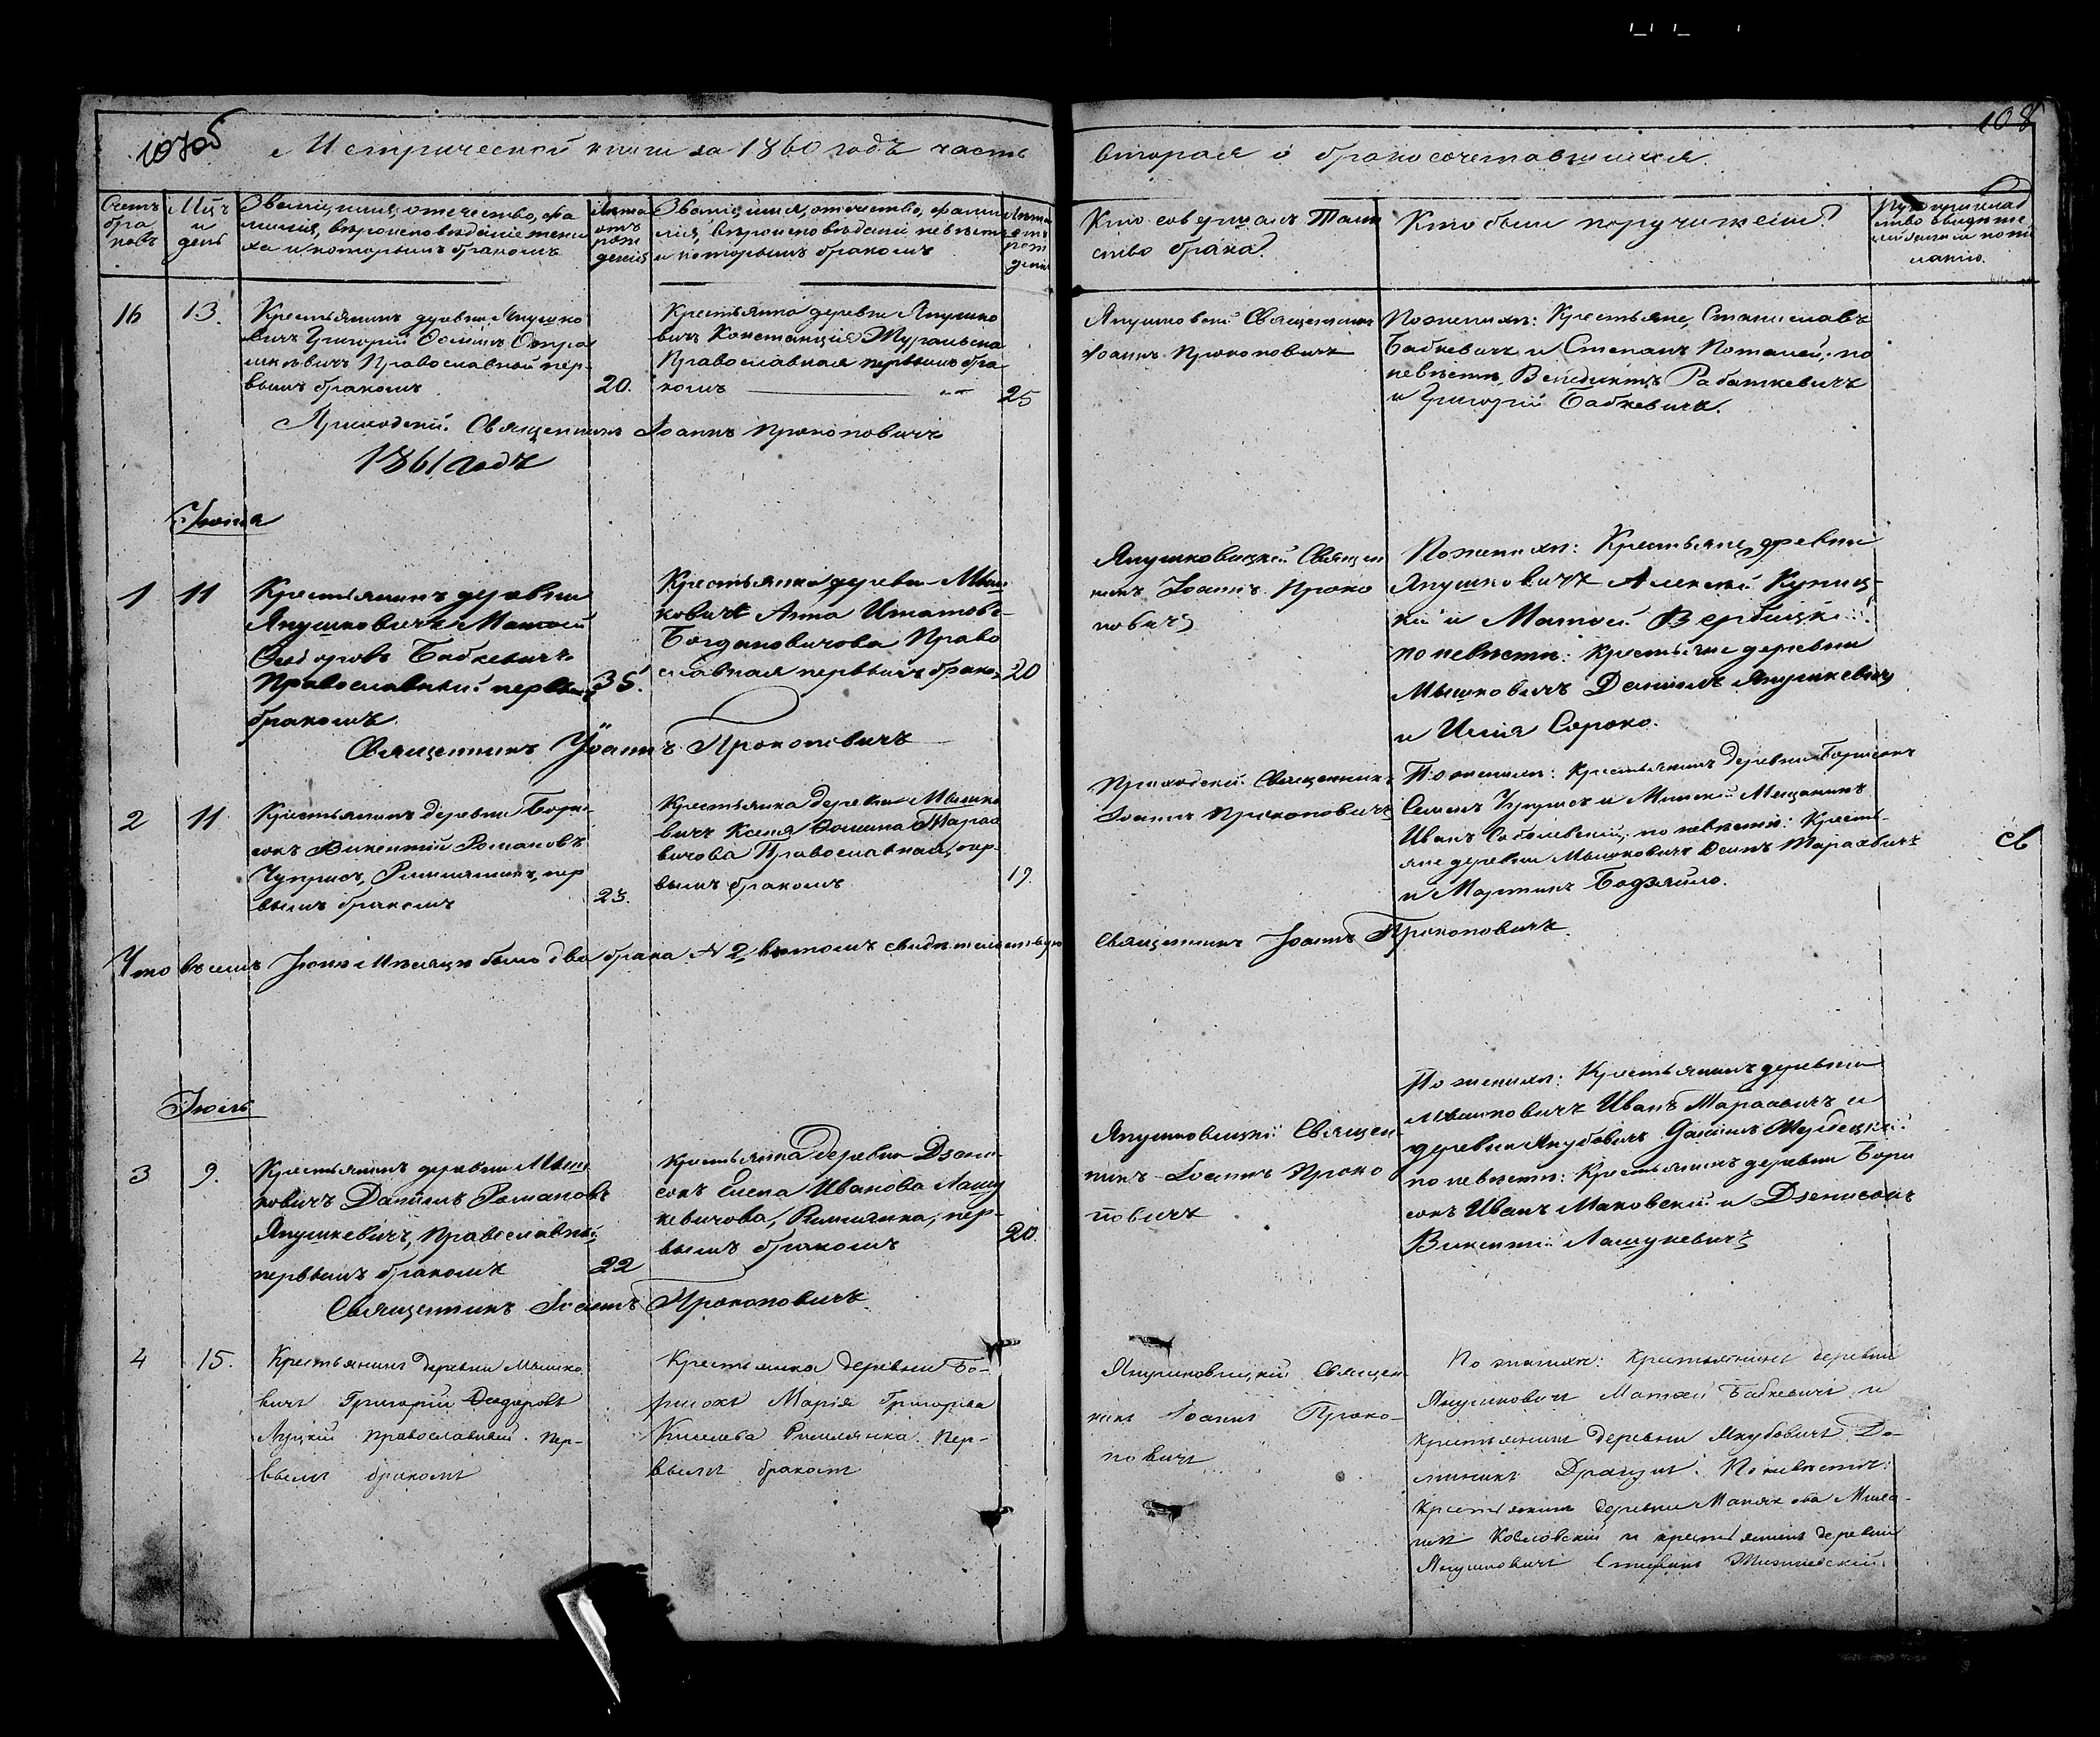 107об
Метрической книги за 1860 годъ часть
вторая о бракосочетавшихся.
108
Счетъ браковъ
Мцъ и день
Званіе, имя, отечество, фа
милія, вѣроисповѣданіе жени
ха и которымъ бракомъ
Лѣта отъ рож денія
Званіе, имя, отечество, фами
лія, вѣроисповѣданіе невѣсты
и которымъ бракомъ
Лѣта отъ рож денія
Кто совершалъ Таин
ство брака?
Кто были поручители?
16
13.
Крестьянинъ деревни Янушко
вичъ Григорій Осиповъ
Православной пер-
вымъ бракомъ
20.
Крестьянка деревни Янушко
вичъ Констанція
Православная первымъ бра
комъ
25
Священникъ
Іоаннъ Прокоповичъ
По женихѣ: Крестьяне, Станиславъ
Бабкевичъ и Степанъ по
невѣстѣ, Венедиктъ Рабаткевичъ
и Григорій Бабкевичъ.
Приходскій Священникъ Іоаннъ Прокоповичъ
1861 Годъ
Іюня
1
11
Крестьянинъ деревни
Янушковичъ Матѳей
Ѳеодоровъ Бабкевичъ
Православный первымъ
бракомъ
35.
Крестьянка деревни Мыш
ковичъ Анна Игнатова
Богдановичова Право
славная первымъ брако
20
Янушковицкій Священ
никъ Іоаннъ Проко
повичъ
По женихѣ: Крестьяне деревни
Янушковичъ Алексѣй Куниц-
кій и Матѳей Вербицкій
по невѣстѣ: крестьяне деревни
Мышковичъ Даніилъ Янушкевичъ
и Илія Сороко.
Священникъ Іоаннъ Прокоповичъ
2
11
Крестьянинъ деревни Бори
сокъ Викентій Романовъ
Чуприсъ, Римлянинъ, пер
вымъ бракомъ
23.
Крестьянка деревни Мышко
вичъ Ксенія Фомина Тарас
вичова Православная, пер-
вымъ бракомъ
19.
Приходскій Священникъ
Іоаннъ Прокоповичъ
По женихѣ: Крестьянинъ деревни Борисокъ
Семенъ Чуприсъ и Минскій Мещанинъ
Иванъ Соболевскій, по невѣстѣ: Кресть-
яне деревни Мышковичъ Осипъ Тарасевичъ
и Мартинъ Бодзяйло.
Что въ семъ Іюнѣ Мѣсяцѣ было два брака N 2 въ томъ свидѣтельствую
Священникъ Іоаннъ Прокоповичъ.
Іюль
3
9.
Крестьянинъ деревни Мыш
ковичъ Даніилъ Романовъ
Янушкевичъ, Православный
первымъ бракомъ
22
Крестьянка деревни Дзени
сокъ Елена Иванова Лашу
кевичова, Римлянка, пер-
вымъ бракомъ
20.
Янушковицкій Священ
никъ Іоаннъ Проко
повичъ
По женихѣ: Крестьянинъ деревни
Мышковичъ Иванъ Тарасевичъ и
деревни Якубовичъ
по невѣстѣ: Крестьянинъ деревни Бори
сокъ Иванъ Маковскій и Дзенисокъ
Викентій Лашукевичъ
Священникъ Іоаннъ Прокоповичъ
4
15.
Крестьянинъ деревни Мышко
вичъ Григорій Ѳеодоровъ
Луцкій православный. Пер-
вымъ бракомъ
Крестьянка деревни Бо-
рисокъ Марія Григорьева
Римлянка. Пер-
вымъ бракомъ
Янушковицкій Священ
никъ Іоаннъ Проко-
повичъ
По женихѣ: Крестьянинъ деревни
Янушковичъ Матѳей Бабкевичъ и
крестьянинъ деревни Якубовичъ До-
миникъ По невѣстѣ:
Крестьянинъ деревни
Козловскій и крестьянинъ деревни
Янушковичъ Стефанъ